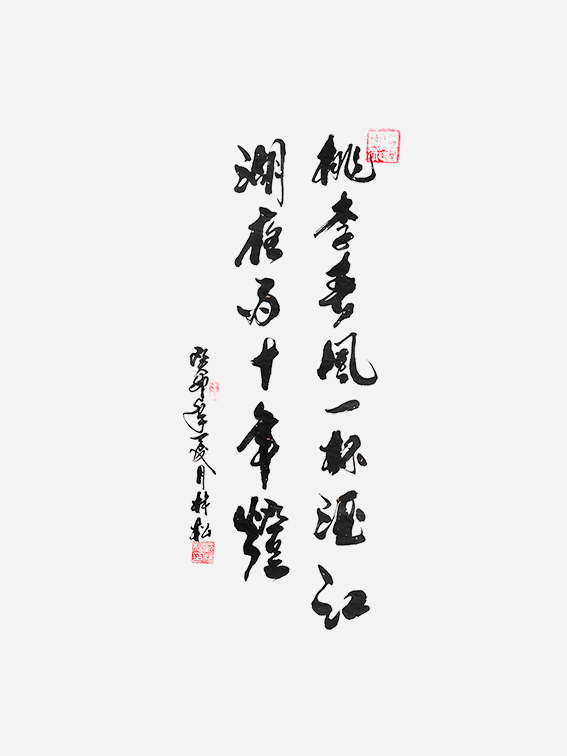 桃李春風一杯酒江
湖夜雨十年燈
癸卯年夏月林松